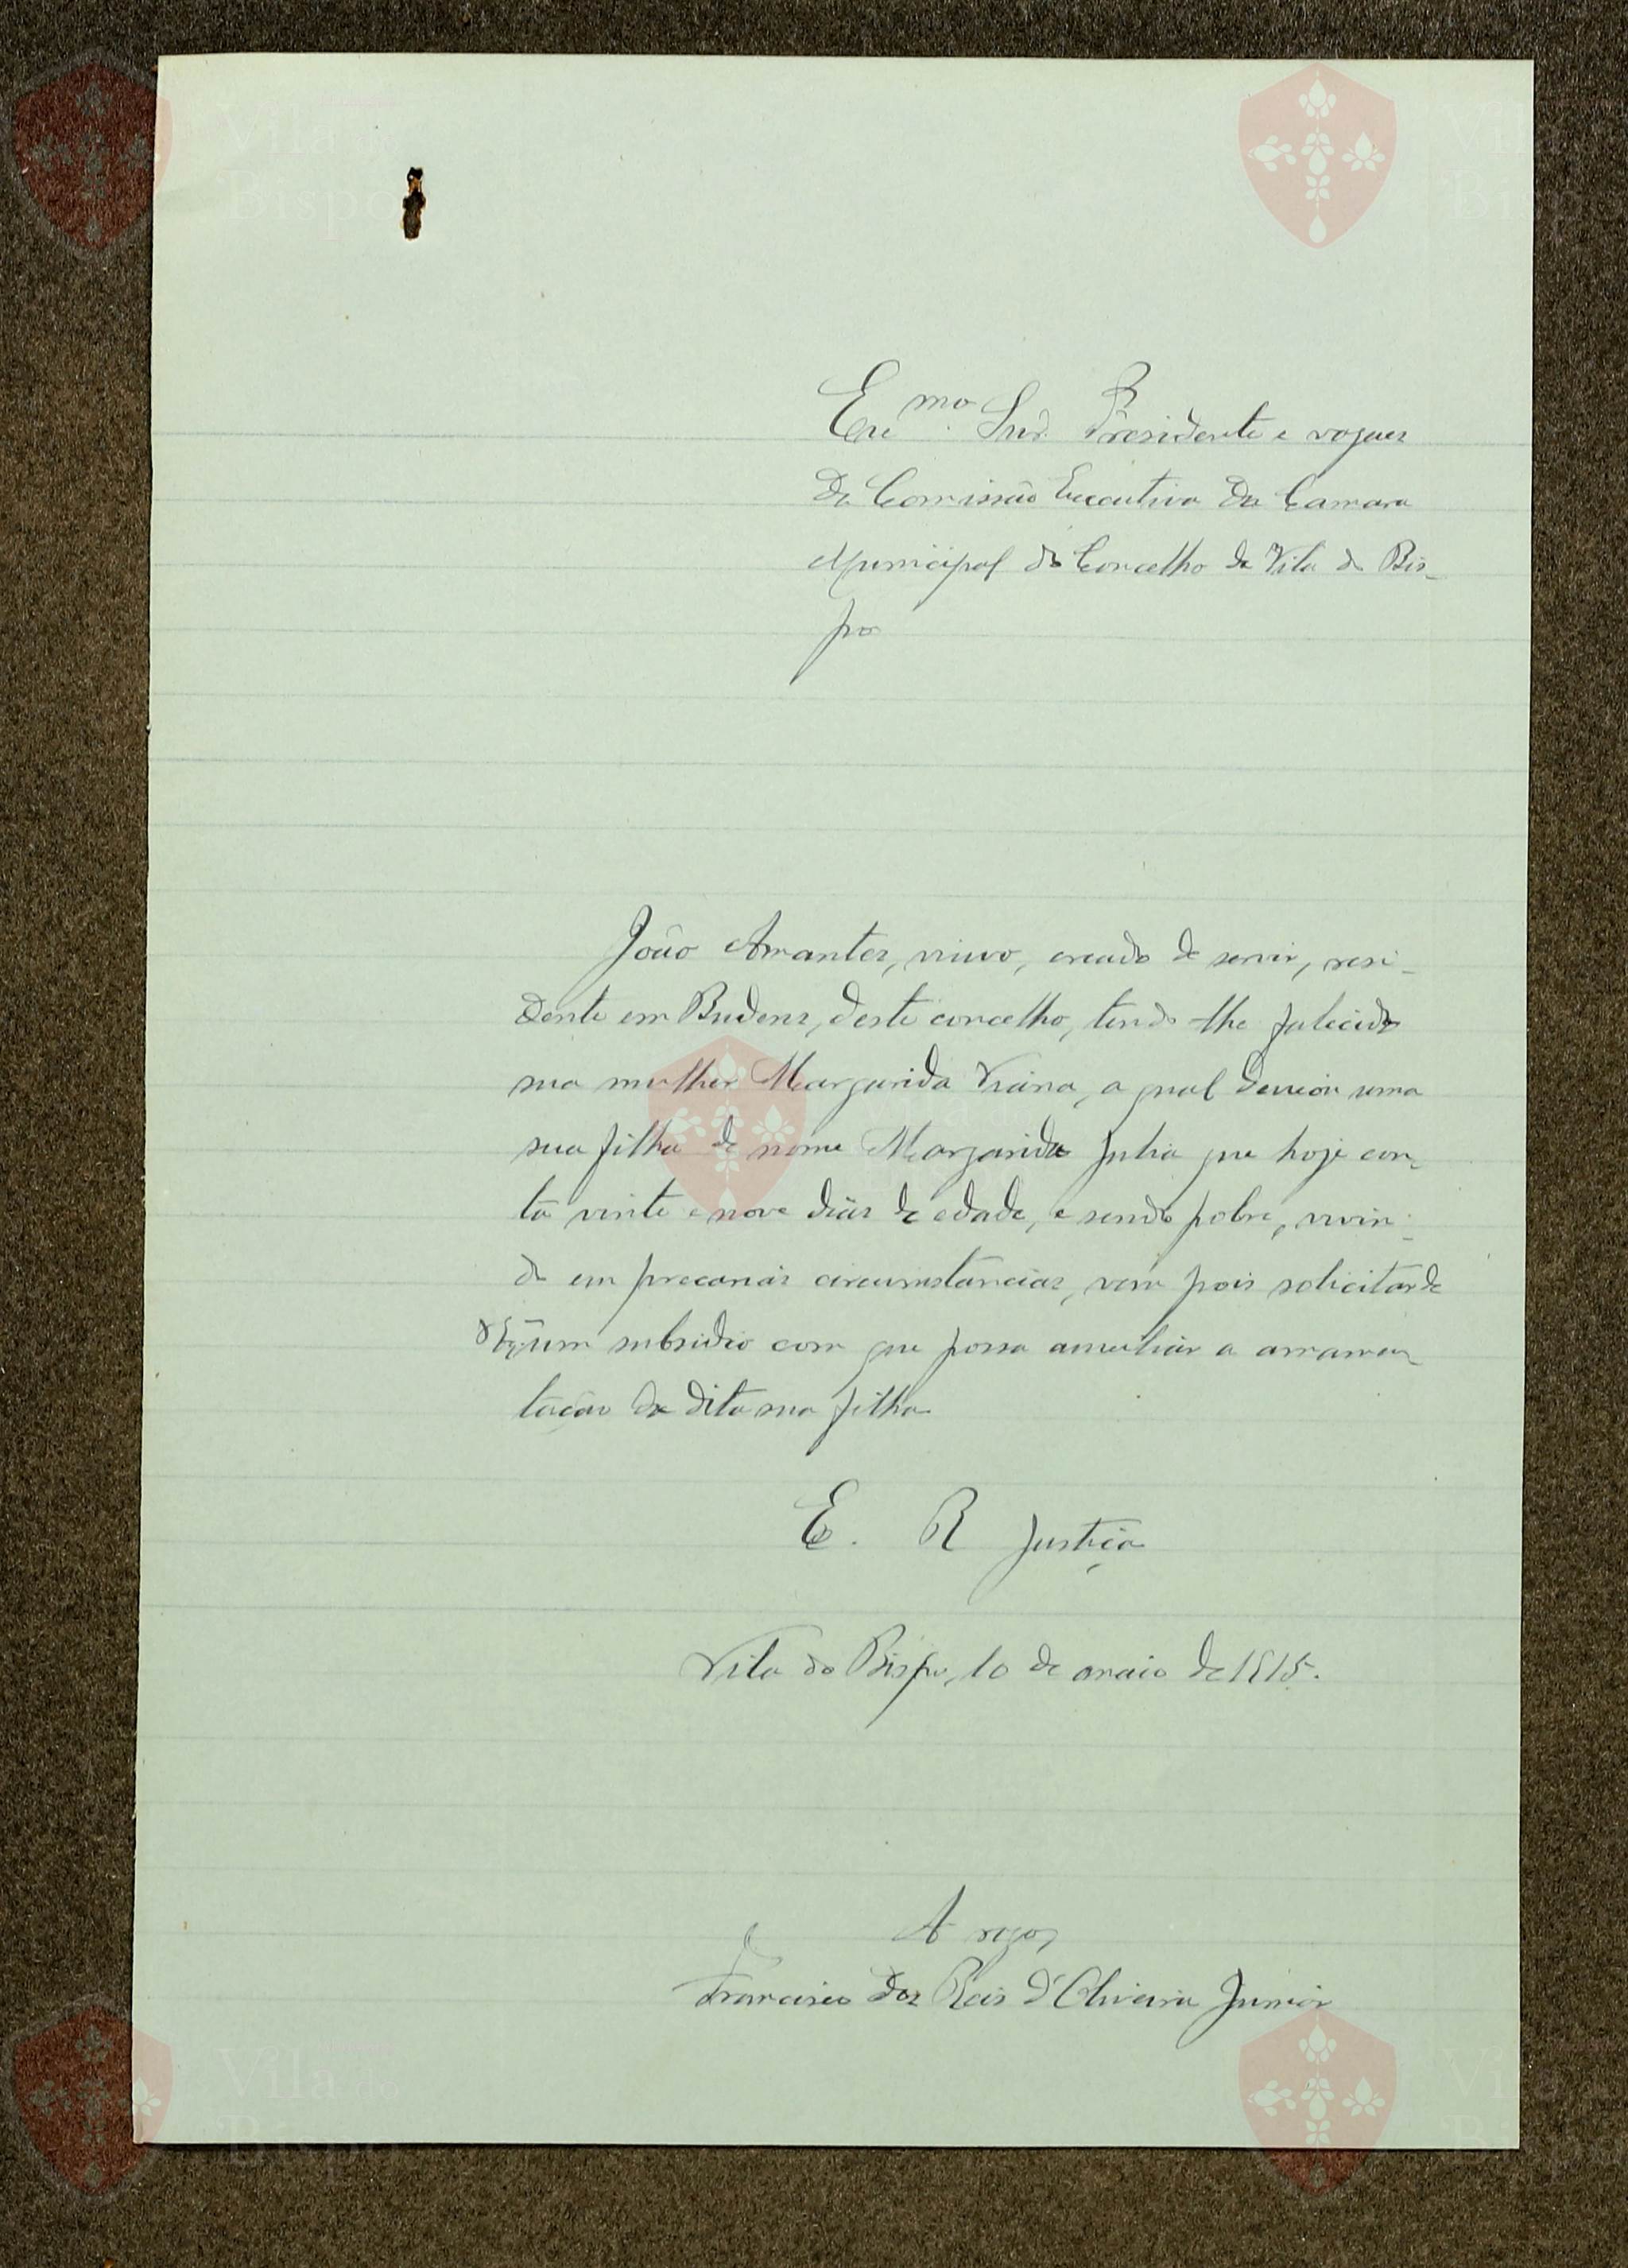 Exᵐᵒ. Snr. Presidente e vogaes
da Comissão Executiva da Camara
Municipal do Concelho de Vila do Bis-
po
João Amantes, viuvo, creado de servir, resi-
dente em Budens, deste concelho, tendo-lhe falecido
sua mulher Margarida Viana, a qual deixou uma
sua filha de nome Margarida Julia que hoje con-
ta vinte e nove dias de edade, e sendo pobre, viven-
do em precarias circumstancias, vem pois solicitar de
V. Exᵃ um subsidio com que possa auxiliar a amamen-
tação da dita sua filha
E. R Justiça
Vila do Bispo, 10 de maio de 1915.
A rogo,
Francisco dos Reis d'Oliveira Junior
Vila do
Bispo